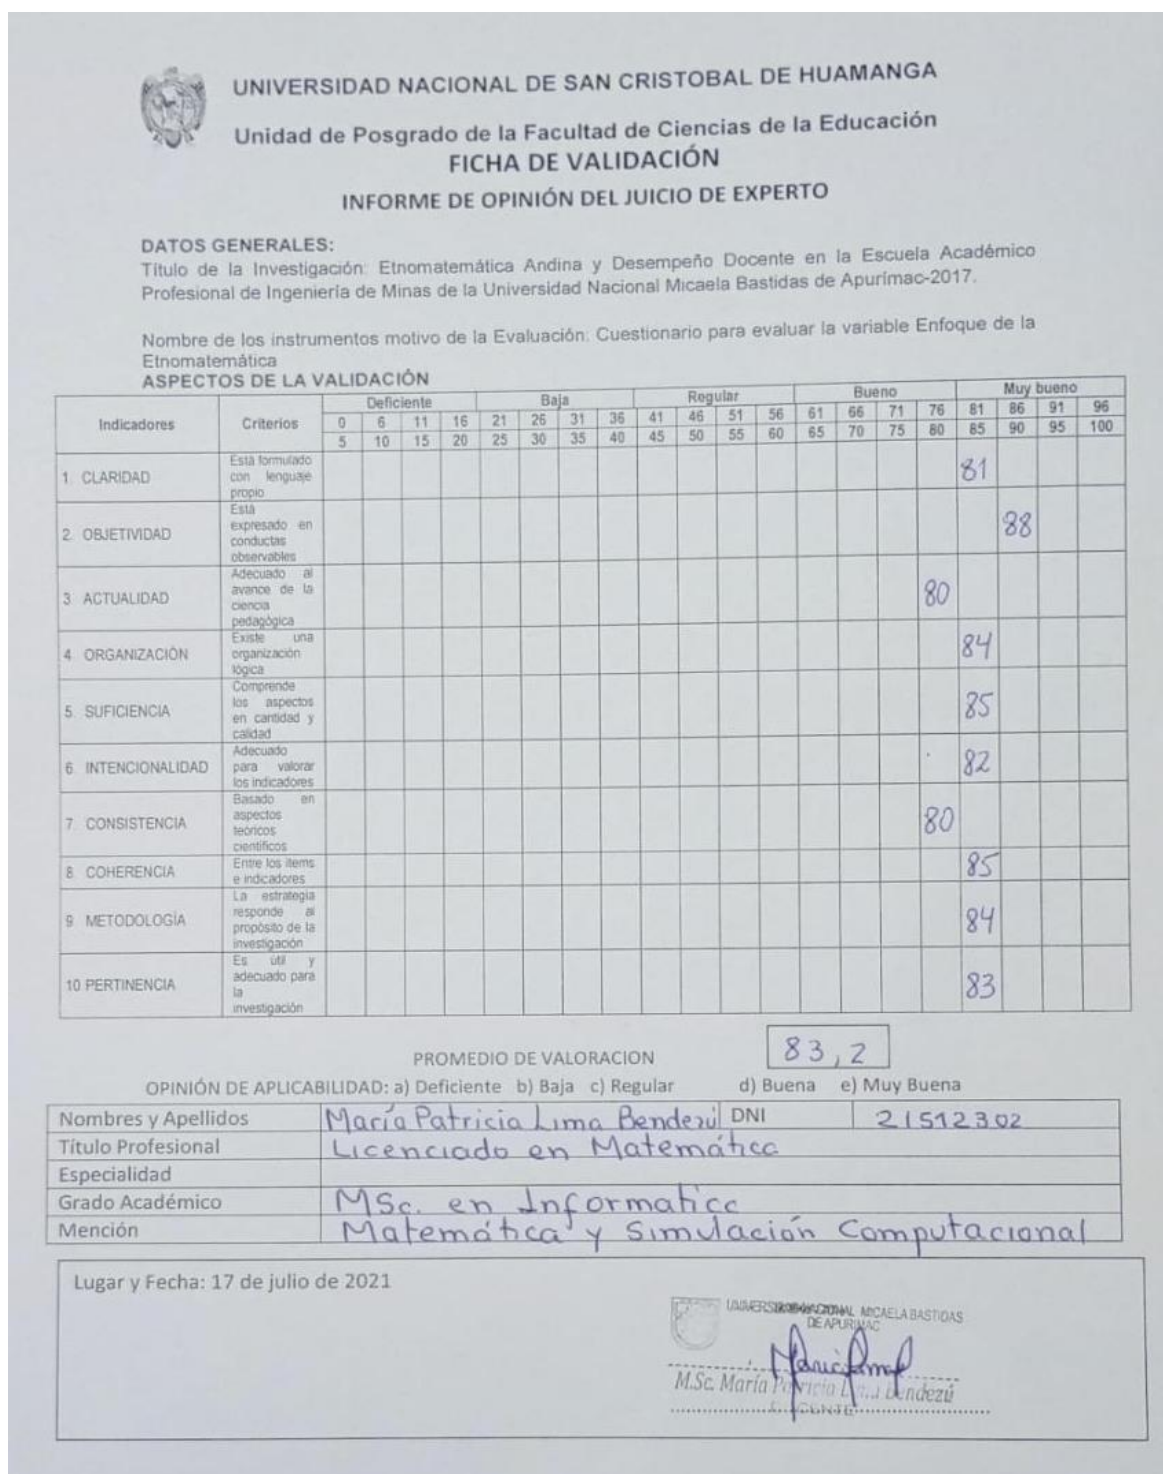 UNIVERSIDAD NACIONAL DE SAN CRISTOBAL DE HUAMANGA
Unidad de Posgrado de la Facultad de Ciencias de la Educación
FICHA DE VALIDACIÓN
INFORME DE OPINIÓN DEL JUICIO DE EXPERTO
DATOS GENERALES:
Título de la Investigación: Etnomatemática Andina y Desempeño Docente en la Escuela Académico
Profesional de Ingeniería de Minas de la Universidad Nacional Micaela Bastidas de Apurímac-2017.
Nombre de los instrumentos motivo de la Evaluación: Cuestionario para evaluar la variable Enfoque de la
Etnomatemática
ASPECTOS DE LA VALIDACIÓN
Indicadores Criterios Deficiente Baja Regular Bueno Muy bueno
0 6 11 16 21 26 31 36 41 46 51 56 61 66 71 76 81 86 91 96
5 10 15 20 25 30 35 40 45 50 55 60 65 70 75 80 85 90 95 100
1. CLARIDAD
Está formulado
con lenguaje
propio
81
2. OBJETIVIDAD
Está
expresado en
conductas
observables
88
3. ACTUALIDAD
Adecuado al
avance de la
ciencia
pedagógica
80
4. ORGANIZACIÓN
Existe una
organización
lógica
84
5. SUFICIENCIA
Comprende
los aspectos
en cantidad y
calidad
85
6. INTENCIONALIDAD
Adecuado
para valorar
los indicadores
82
7. CONSISTENCIA
Basado en
aspectos
teóricos
científicos
80
8. COHERENCIA
Entre los items
e indicadores
85
9. METODOLOGÍA
La estrategia
responde al
propósito de la
investigación
84
10 PERTINENCIA
Es útil y
adecuado para
la
investigación
83
PROMEDIO DE VALORACION 83,2
OPINIÓN DE APLICABILIDAD: a) Deficiente b) Baja c) Regular d) Buena e) Muy Buena
Nombres y Apellidos María Patricia Lima Bendezú DNI 21512302
Título Profesional Licenciado en Matemática
Especialidad
Grado Académico MSc. en Informatica
Mención Matemática y Simulación Computacional
Lugar y Fecha: 17 de julio de 2021
UNIVERSIDAD NACIONAL MICAELA BASTIDAS
DE APURIMAC
M.Sc. María Patricia Lima Bendezú
DOCENTE